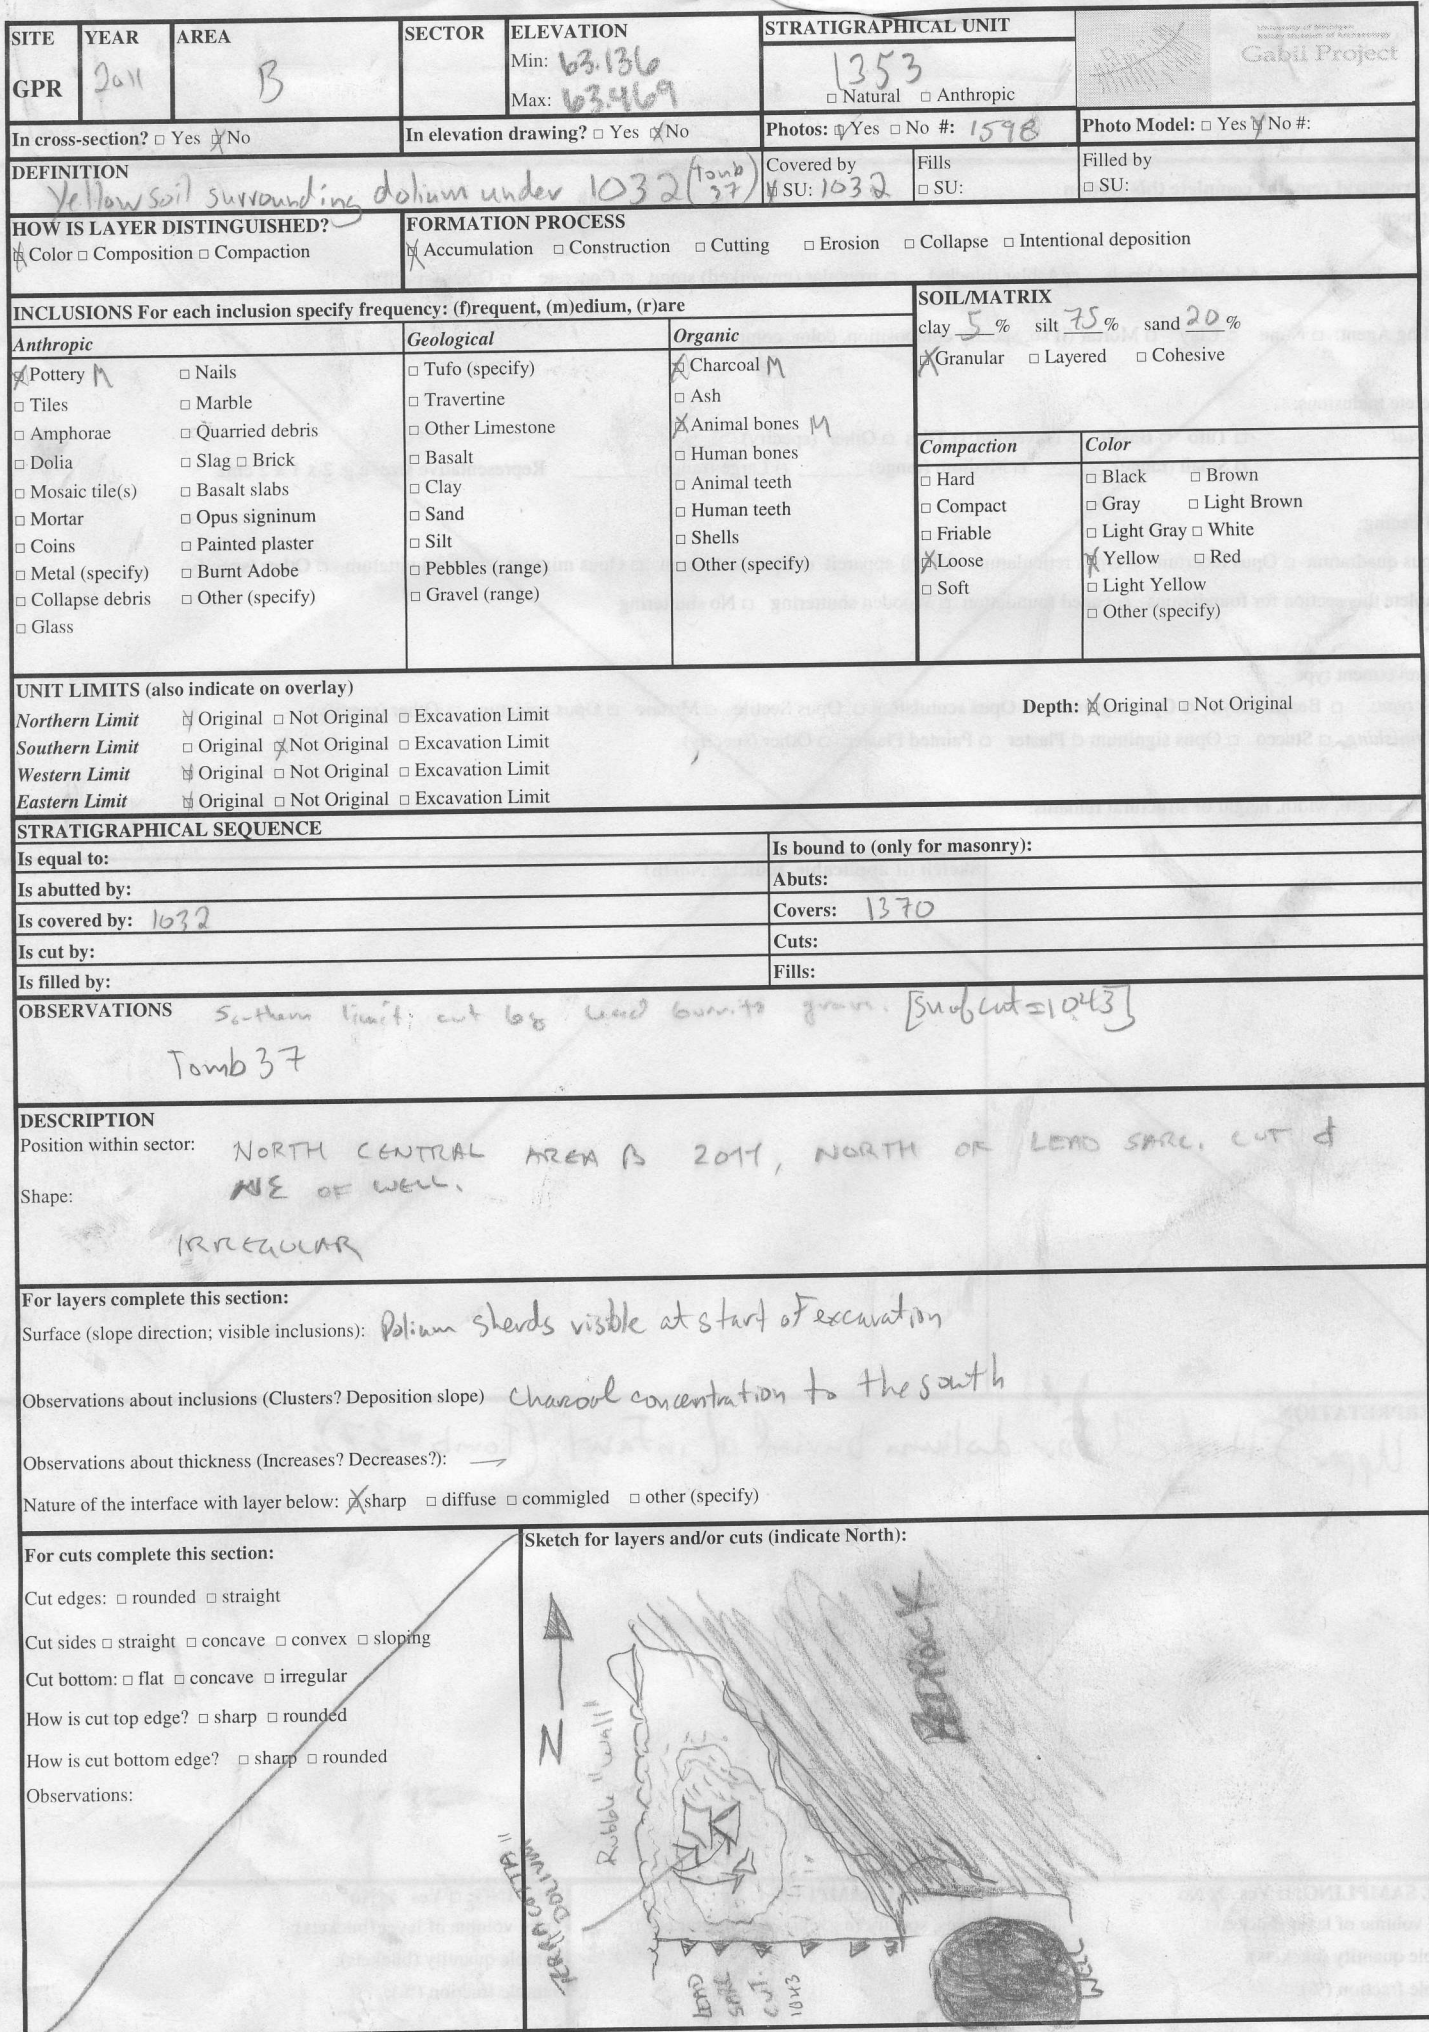 SITE YEAR AREA SECTOR ELEVATION STRATIGRAPHICAL UNIT
GPR 2011 B Min: 63.136 1353
Max: 63.469 □ Natural □ Anthropic
University of Michigan
Kelsey Museum of Archaeology
Gabii Project
In cross-section? □ Yes ☒ No In elevation drawing? □ Yes ☒ No Photos: ☒ Yes □ No #: 1598 Photo Model: □ Yes ☒ No #:
DEFINITION
Yellow soil surrounding dolium under 1032 (tomb 37)
Covered by Fills Filled by
☒ SU: 1032 □ SU: □ SU:
HOW IS LAYER DISTINGUISHED? FORMATION PROCESS
☒ Color □ Composition □ Compaction ☒ Accumulation □ Construction □ Cutting □ Erosion □ Collapse □ Intentional deposition
INCLUSIONS For each inclusion specify frequency: (f)requent, (m)edium, (r)are
Anthropic
☒ Pottery M □ Nails
□ Tiles □ Marble
□ Amphorae □ Quarried debris
□ Dolia □ Slag □ Brick
□ Mosaic tile(s) □ Basalt slabs
□ Mortar □ Opus signinum
□ Coins □ Painted plaster
□ Metal (specify) □ Burnt Adobe
□ Collapse debris □ Other (specify)
□ Glass
Geological
□ Tufo (specify)
□ Travertine
□ Other Limestone
□ Basalt
□ Clay
□ Sand
□ Silt
□ Pebbles (range)
□ Gravel (range)
Organic
☒ Charcoal M
□ Ash
☒ Animal bones M
□ Human bones
□ Animal teeth
□ Human teeth
□ Shells
□ Other (specify)
SOIL/MATRIX
clay 5 % silt 75 % sand 20 %
☒ Granular □ Layered □ Cohesive
Compaction
□ Hard
□ Compact
□ Friable
☒ Loose
□ Soft
Color
□ Black □ Brown
□ Gray □ Light Brown
□ Light Gray □ White
☒ Yellow □ Red
□ Light Yellow
□ Other (specify)
UNIT LIMITS (also indicate on overlay)
Northern Limit ☒ Original □ Not Original □ Excavation Limit Depth: ☒ Original □ Not Original
Southern Limit □ Original ☒ Not Original □ Excavation Limit
Western Limit ☒ Original □ Not Original □ Excavation Limit
Eastern Limit ☒ Original □ Not Original □ Excavation Limit
STRATIGRAPHICAL SEQUENCE
Is equal to: Is bound to (only for masonry):
Is abutted by: Abuts:
Is covered by: 1032 Covers: 1370
Is cut by: Cuts:
Is filled by: Fills:
OBSERVATIONS Southern limit; cut by lead burrito grave. [SU of cut = 1043]
Tomb 37
DESCRIPTION
Position within sector: NORTH CENTRAL AREA B 2011, NORTH OF LEAD SARC. CUT &
NE OF WELL.
Shape:
IRREGULAR
For layers complete this section:
Surface (slope direction; visible inclusions): Dolium sherds visible at start of excavation
Observations about inclusions (Clusters? Deposition slope) Charcoal concentration to the south
Observations about thickness (Increases? Decreases?): —
Nature of the interface with layer below: ☒ sharp □ diffuse □ commigled □ other (specify)
For cuts complete this section:
Cut edges: □ rounded □ straight
Cut sides □ straight □ concave □ convex □ sloping
Cut bottom: □ flat □ concave □ irregular
How is cut top edge? □ sharp □ rounded
How is cut bottom edge? □ sharp □ rounded
Observations:
Sketch for layers and/or cuts (indicate North):
N
Rubble "wall"
BEDROCK
TERRACOTTA "
DOLIUM"
LEAD
SARC
CUT.
1043
WELL